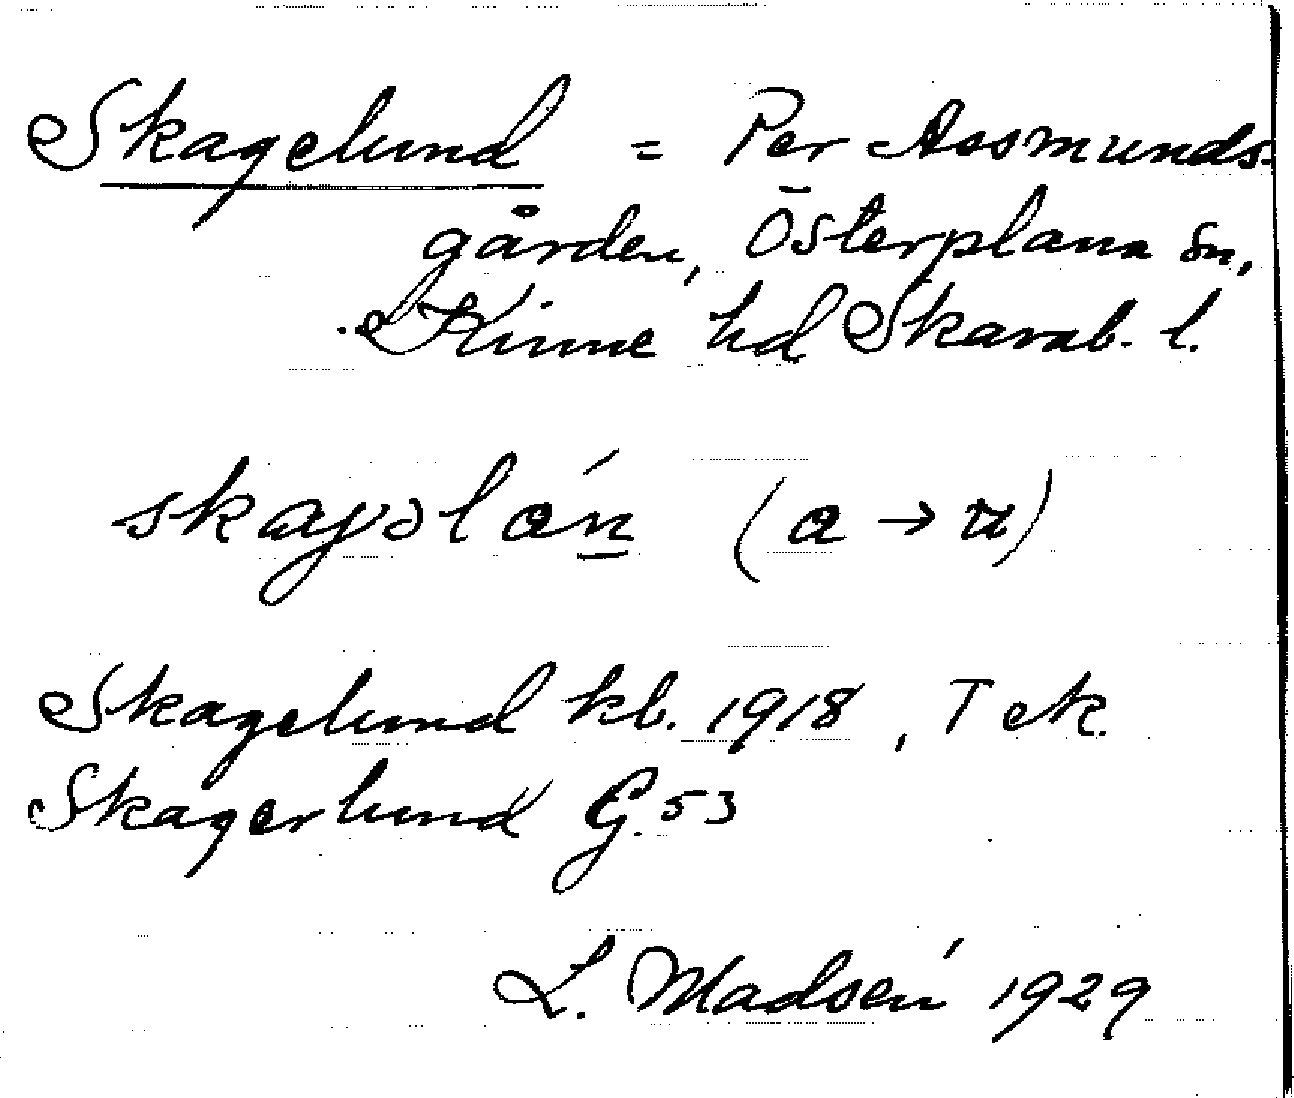 Skagelund = Per Assmunds-
gården, Österplana sn,
Kinne hd Skarab. l.
skaγəlán̲ (a → 
Skagelund kb. 1918, T ek.
Skagerlund G. 53
L. Madsén 1929